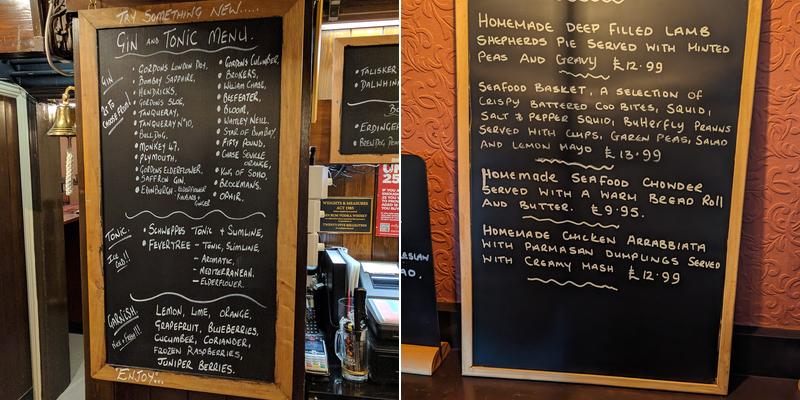 TRY SOMETHING NEW.....
GIN AND TONIC MENU.
GIN
25 TO
CHOOSE FROM!
• GORDONS LONDON DRY,
BOMBAY SAPPHIRE,
HENDRICKS,
GORDONS SLOE,
TANQUERAY,
TANQUERAY Nº10,
BULLDOG,
MONKEY 47,
PLYMOUTH,
GORDONS ELDERFLOWER,
SAFFRON GIN
EDINBURGH - ELDERFLOWER
RHUBARB +
GINGER
• GORDONS CUCUMBER,
• BROKERS,
• WILLIAM CHASE,
• BEEFEATER,
• BLOOM,
• WHITLEY NEILL,
• STAR OF BOMBAY,
• FIFTY POUND,
• CHASE SEVILLE
ORANGE,
• KING OF SOHO
• BROCKMANS,
• OPIHR,
TONIC.
ICE
COLD!!
• SCHWEPPES TONIC + SLIMLINE,
• FEVERTREE - TONIC, SLIMLINE
- AROMATIC,
- MEDITERRANEAN.
- ELDERFLOWER.
GARNISH.
NICE + FRESH!!!
LEMON, LIME, ORANGE,
GRAPEFRUIT, BLUEBERRIES,
CUCUMBER, CORIANDER,
FROZEN RASPBERRIES,
JUNIPER BERRIES.
"ENJOY"...
• TALISKER
• DALWHIN
• ERDINGER
• BREWDOG
WEIGHTS & MEASURES
ACT 1985
GIN RUM VODKA WHISKY
TWENTY FIVE MILLILITRES
25
HOMEMADE DEEP FILLED LAMB
SHEPHERDS PIE SERVED WITH MINTED
PEAS AND GRAVY £12.99
SEAFOOD BASKET, A SELECTION OF
CRISPY BATTERED COD BITES, SQUID,
SALT & PEPPER SQUID, BUTTERFLY PRAWNS
SERVED WITH CHIPS, GARDEN PEAS, SALAD
AND LEMON MAYO £13.99
HOMEMADE SEAFOOD CHOWDER
SERVED WITH A WARM BREAD ROLL
AND BUTTER. £9.95.
HOMEMADE CHICKEN ARRABBIATA
WITH PARMASAN DUMPLINGS SERVED
WITH CREAMY MASH £12.99